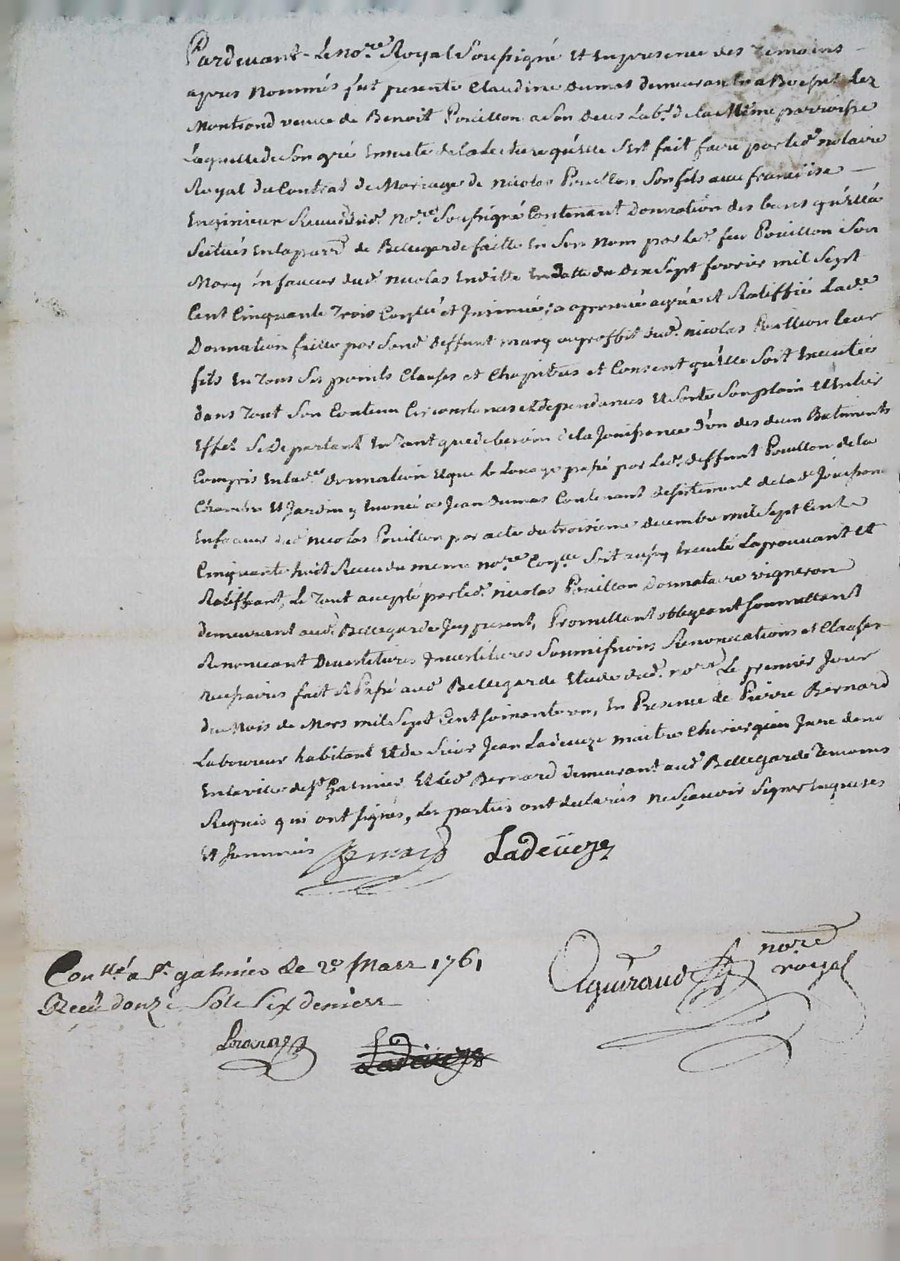 Pardevant Le no.re Royal Soussigné Et En presence des temoins
apres Nommés fut presente Claudine Dumas demeurante a Boisset Lez
Montrond veuve de Benoit Pouillon a Son deces Lab.r de la Même parroisse
Laquelle de Son gré Ensuite de la Lecture qu'Elle S'est fait faire par led. notaire
Royal du Contrat de Mariage de Nicolas Pouillon Son fils avec françoise
no.re Soussigné Contenant Donnation des biens qu'Elle a
Scitués En la parr. de Bellegarde faitte En Son Nom par Le feu Pouillon Son
Mary En faveur dud. Nicolas En datte du Dix Sept fevrier mil Sept
Cent Cinquante trois Conllé et Insinué, a approuvé agréé et Ratiffié Lad.e
Donnation faitte par Sond. deffunt mary au proffit dud. Nicolas Pouillon leur
fils En tous Ses points Clauses et Chapitres et Consent qu'Elle Soit Executée
dans tout Son Contenu Circonstances et dependances Et Sorte Son plain Et Entier
Effet Se Departant En tant que de besoin de la Jouissance d'un des deux Batiments
Compris En lad.e donnation passé par led. deffunt Pouillon de la
Chambre Et Jardin y Enoncé a Jean Dumas Contenant desistement de lad. Jouissance
En faveur dud. Nicolas Pouillon par acte du troisieme decembre mil Sept Cent
Cinquante huit Receu du meme no.re Soit aussy Executé L'aprouvant et
Ratiffiant, Le tout accepté par led. Nicolas Pouillon Donnataire vigneron
demeurant aud. Bellegarde Icy present, Promettant obligeant Soumettant
Renonceant Devestitures Investitures Soumissions Renonciations et Clauses
fait & Passé aud. Bellegarde Etude dud. no.re Le premier Jour
du Mois de Mars mil Sept Cent Soixante un, En Presence de Pierre Bernard
Laboureur habitant Et de Sieur Jean Ladeveze maitre Chirurgien Juré dem.t
En la ville de St. Galmier Et led. Bernard demeurant aud. Bellegarde Temoins
Requis qui ont Signés, Les parties ont declarés ne Sçavoir Signer Enquises
Et Sommés Bernard Ladeüeze
Conllé a St. galmier le 2e Mars 1761
Reçu douze Sols Six deniers
Aguiraud no.re royal
Ladeüeze